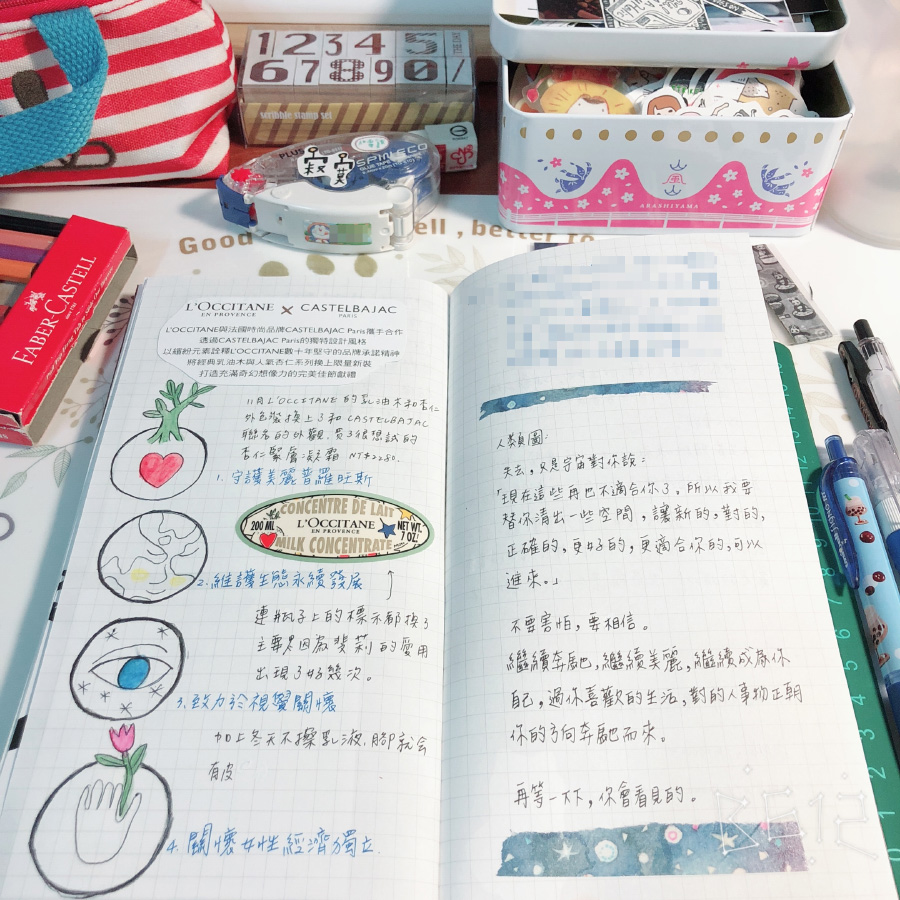 1 2 3 4 5
6 7 8 9 0 /
scribble stamp set
PLUS
SPIN ECO
GLUE TAPE
嵐山
ARASHIYAMA
FABER-CASTELL
Good
ell , better to
L'OCCITANE × CASTELBAJAC
EN PROVENCE
PARIS
L'OCCITANE與法國時尚品牌CASTELBAJAC Paris攜手合作
透過CASTELBAJAC Paris的獨特設計風格
以繽紛元素詮釋L'OCCITANE數十年堅守的品牌承諾精神
將經典乳油木與人氣杏仁系列換上限量新裝
打造充滿奇幻想像力的完美佳節獻禮
11月L'OCCITANE的乳油木和杏仁
外包裝換上了和CASTELBAJAC
聯名的外觀,買了很想試的
杏仁緊膚凝霜 NT$2280.
1.守護美麗普羅旺斯
CONCENTRÉ DE LAIT
200 ML
L'OCCITANE
EN PROVENCE
NET WT.
7 OZ.
MILK CONCENTRATE
2.維護生態永續發展
連瓶子上的標示都換了
主要是因為斐莉的愛用
出現了好幾次。
3.致力於視覺關懷
加上冬天不擦乳液,腳就會
有皮
4.關懷女性經濟獨立.
人類圖:
失去,只是宇宙對你說:
「現在這些再也不適合你了,所以我要
替你清出一些空間,讓新的,對的,
正確的,更好的,更適合你的,可以
進來。」
不要害怕,要相信。
繼續奔馳,繼續美麗,繼續成為你
自己,過你喜歡的生活,對的人事物正朝
你的方向奔馳而來。
再等一下,你會看見的。